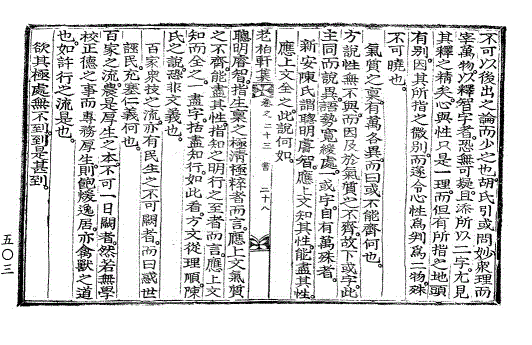 不可以後出之論而少之也胡氏引或問妙衆理而
宰萬物以釋智字者恐無可疑且添所以二字尤見
其釋之精矣心與性只是一理而但有所指之地頭
有別因其所指之微別而遂合心性爲判爲二物殊
不可曉也
氣質之稟有萬各異而曰或不能齊何也
方說性無不與而因及於氣質之不齊故下或字此
主同而說異語勢寬緩處或字自有萬殊者
新安陳氏謂聰明睿智應上文知其性能盡其性
應上文全之此說何如
老柏軒集 卷之二十三 書 二十八
聰明睿智指生稟之極淸極粹者而言應上文氣質
之不齊能盡其性指知之明行之至者而言應上文
知而全之一盡字括盡知行如此看方文從理順陳
氏之說恐非文義也
百家衆技之流亦有民生之不可闕者而曰惑世
誣民充塞仁義何也
百家之流農是厚生之本不可一日闕者然若無學
校正德之事而專務厚生則飽煖逸居亦禽獸之道
也如許行之流是也
欲其極處無不到到是甚到
五〇三